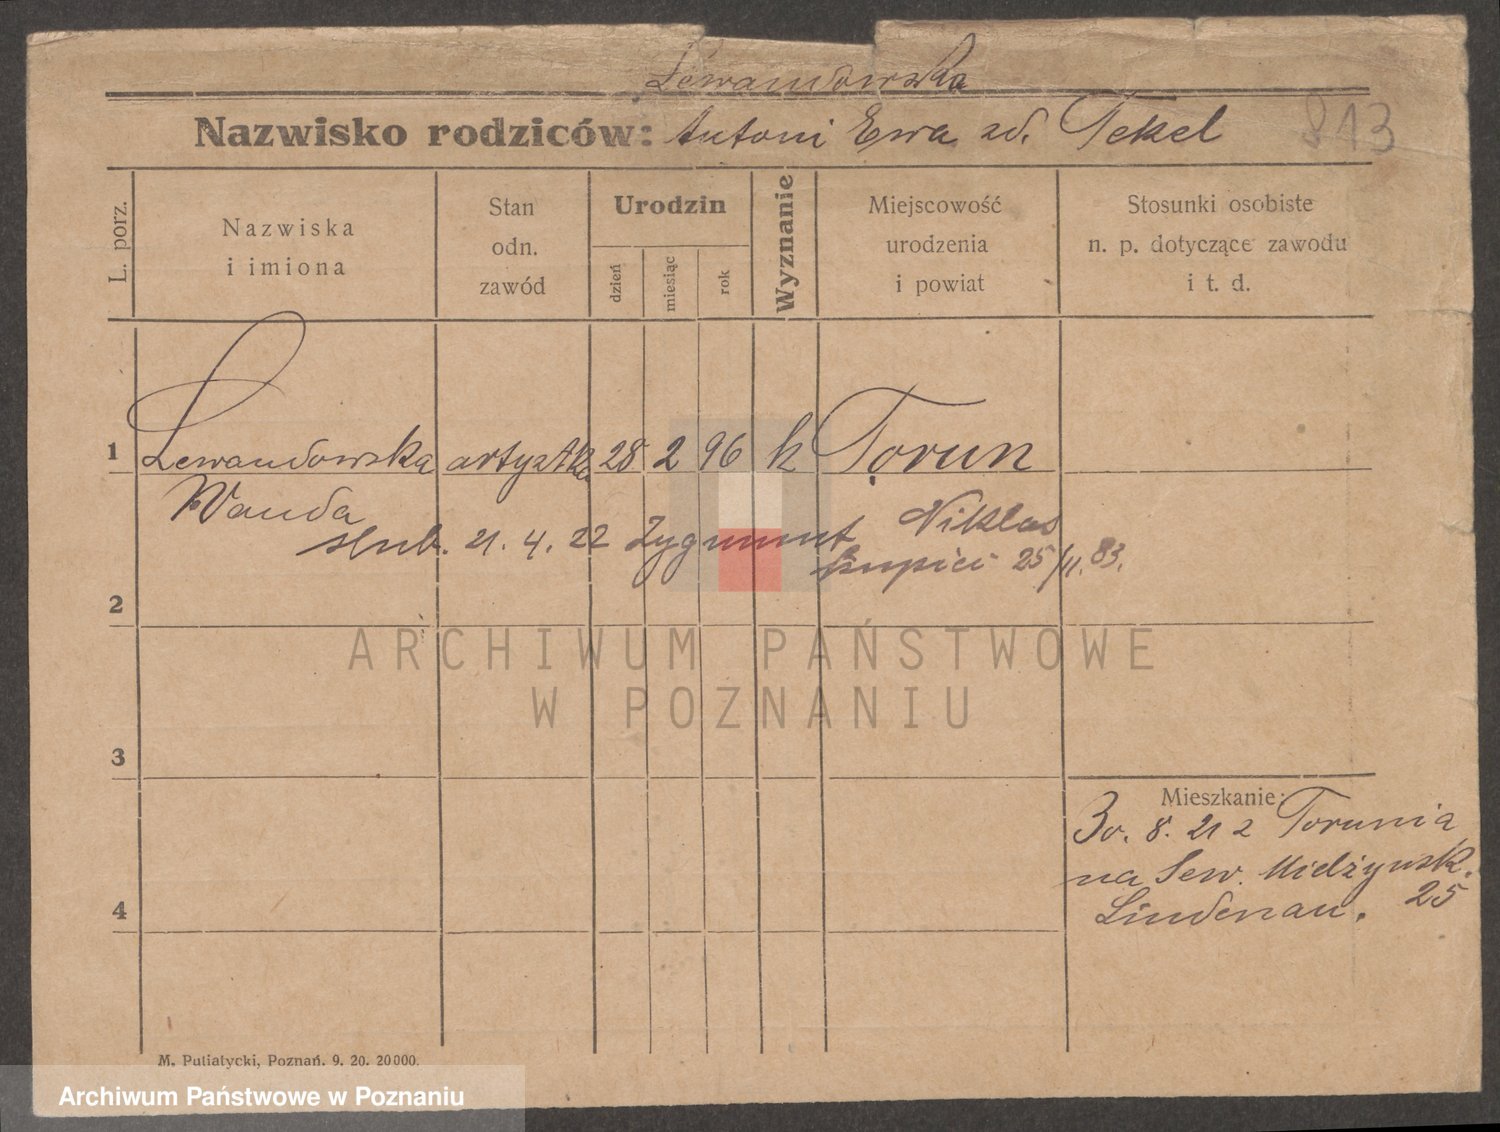 Lewandowska
Nazwisko rodziców: Antoni Ewa zd. Tekel 813
L. porz.
Nazwiska
i imiona
Stan
odn.
zawód
Urodzin
dzień
miesiąc
rok
Wyznanie
Miejscowość
urodzenia
i powiat
Stosunki osobiste
n. p. dotyczące zawodu
i t. d.
1 Lewandowska artystka 28 2 96 k Toruń
Wanda
slub. 21. 4. 22 Zygmunt Niklas
kupiec 25/11. 83.
2
ARCHIWUM PAŃSTWOWE
W POZNANIU
3
Mieszkanie:
30. 8. 21 z Torunia
na Sew. Mielżyńsk.
25
Lindenau.
4
M. Putiatycki, Poznań. 9. 20. 20000.
Archiwum Państwowe w Poznaniu